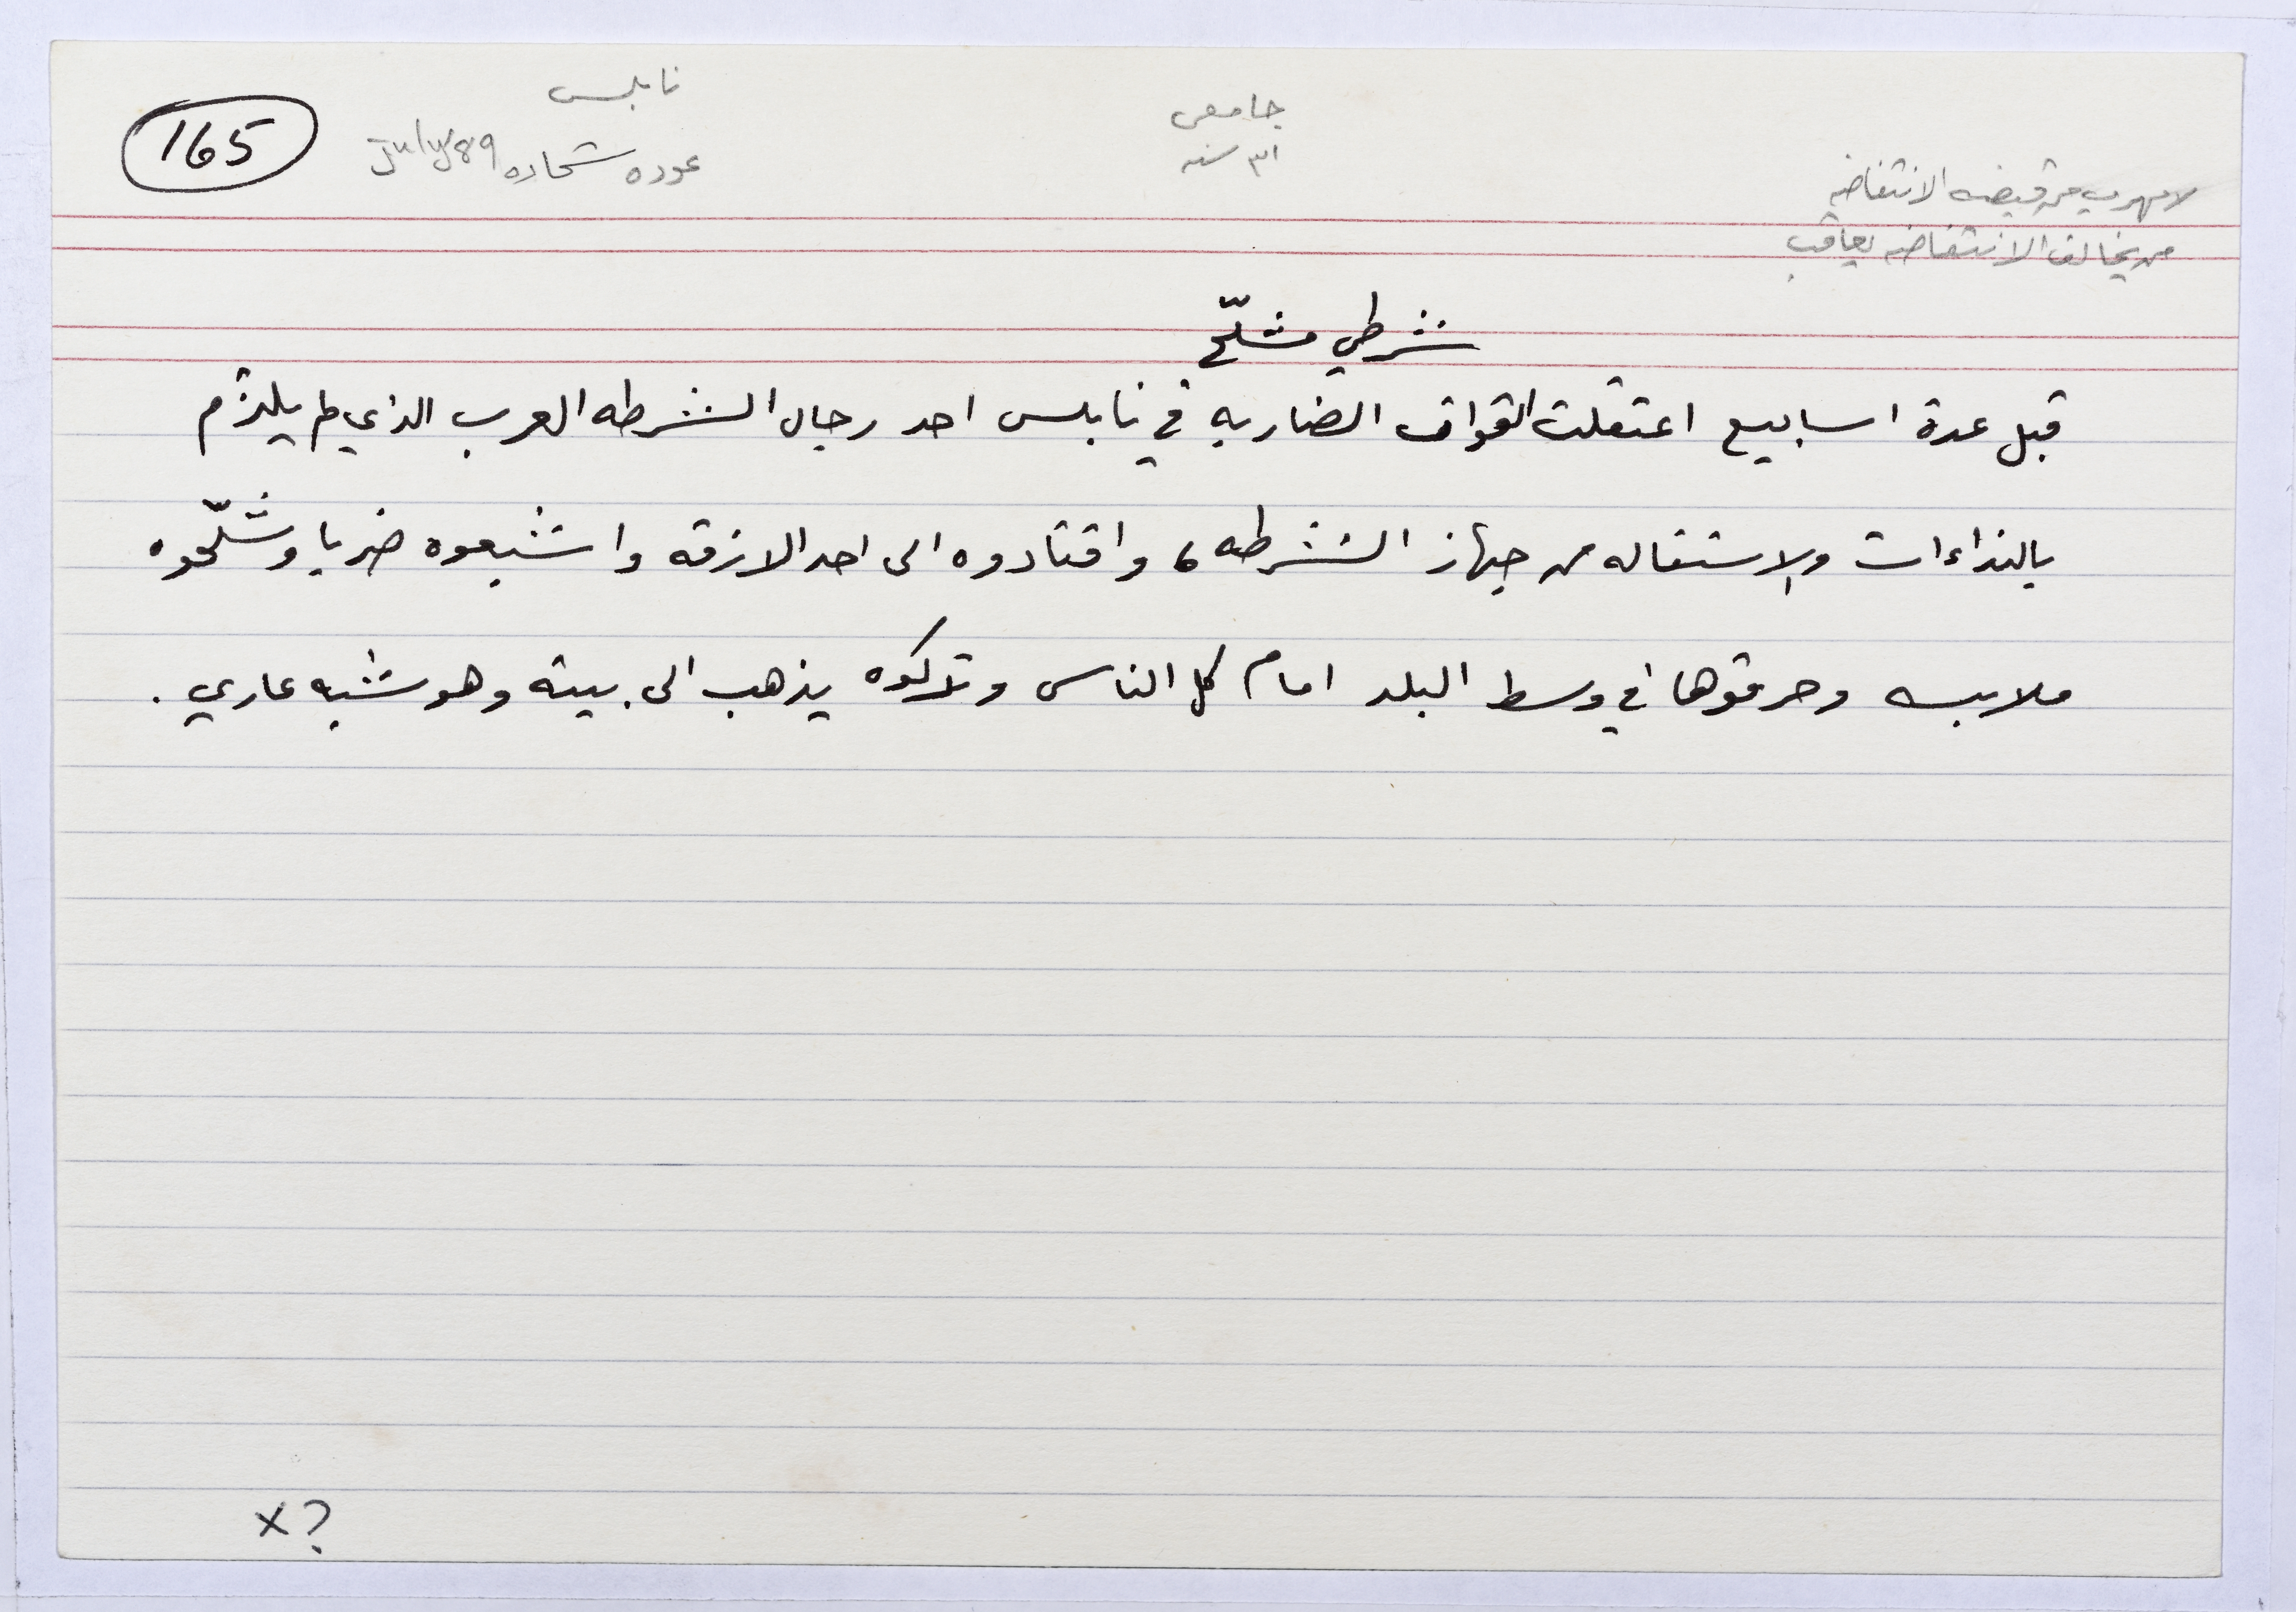 نابلس
165
عوده شحاده July 89
جامعي
٣١ سنه
لا مهرب من قبضه الانتفاضه
من يخالف الانتفاضه يعاقب
شرطي مشلّح
قبل عدة اسابيع اعتقلت القوات الضاربه في نابلس احد رجال الشرطه العرب الذي لم يلتزم
بالنداءات والاستقاله من جهاز الشرطه، واقتادوه الى احد الازقه واشبعوه ضربا وشلّحوه
ملابسه وحرقوها في وسط البلد امام كل الناس وتركوه يذهب الى بيته وهو شبه عاري.
x?